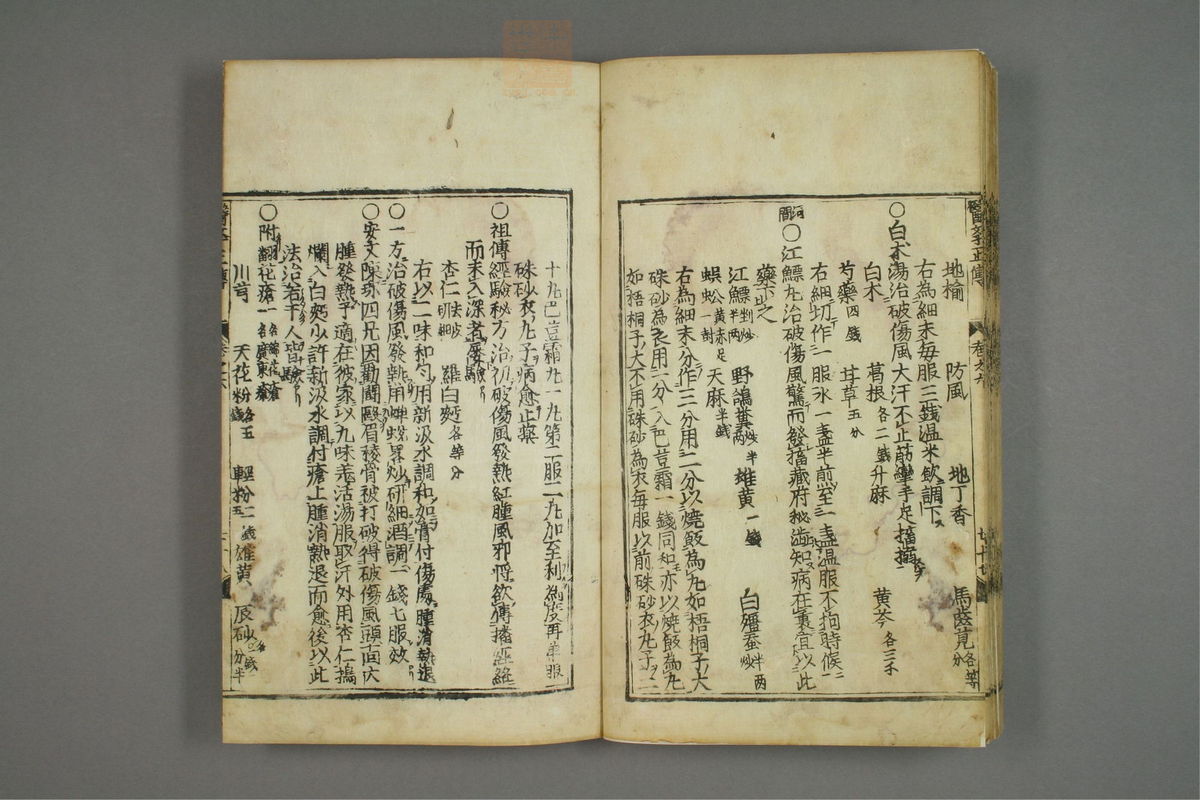 地榆 防風 地丁香 馬莧各等分
右為細末每服三錢温米飲調下
○白术湯治破傷風大汗不止筋攣手足搐搦
白术 葛根各二錢 升麻 黄芩各三
芍藥四錢 甘草五分
右細切作一服水一盞半煎至一盞温服不拘時候
河間○江鰾丸治破傷風驚而發搐藏府秘澁知病在裏宜以此
藥下之
江鰾剉炒半兩 野鴿糞炒半兩 雄黄一錢 白殭蚕炒半兩
蜈蚣一對 天麻半錢
右為細末分作三分用二分以燒飯為丸如梧桐子大
硃砂為衣用一分入巴豆霜一錢同和亦以燒飯為丸
如梧桐子大不用硃砂為衣每服以前硃砂衣丸子二
十丸巴豆霜丸一丸第二服二丸加至利為度再弟服
硃砂衣丸子病愈止藥
○祖傳經驗秘方治初破傷風發熱紅腫風邪將欲傳播經絡
而未入深者屡驗
杏仁去皮研細 羅白麪各等分
右以二味和勻用新汲水調和如膏付傷處腫消熱退
○一方治破傷風發熱用蟬蛻畧炒研細酒調一錢匕服效
○安文陳珠四兄因勸鬪毆眉稜骨被打破得破傷風頭面大
腫發熱予適在彼家以九味羌活湯服取汗外用杏仁搗
爛入白麪少許新汲水調付瘡上腫消熱退而愈後以此
法治若千人皆驗
○附翻花瘡一名綿花瘡一名廣東瘡
川芎 天花粉各五錢 輕粉二錢五 雄黄 辰砂各二錢分半